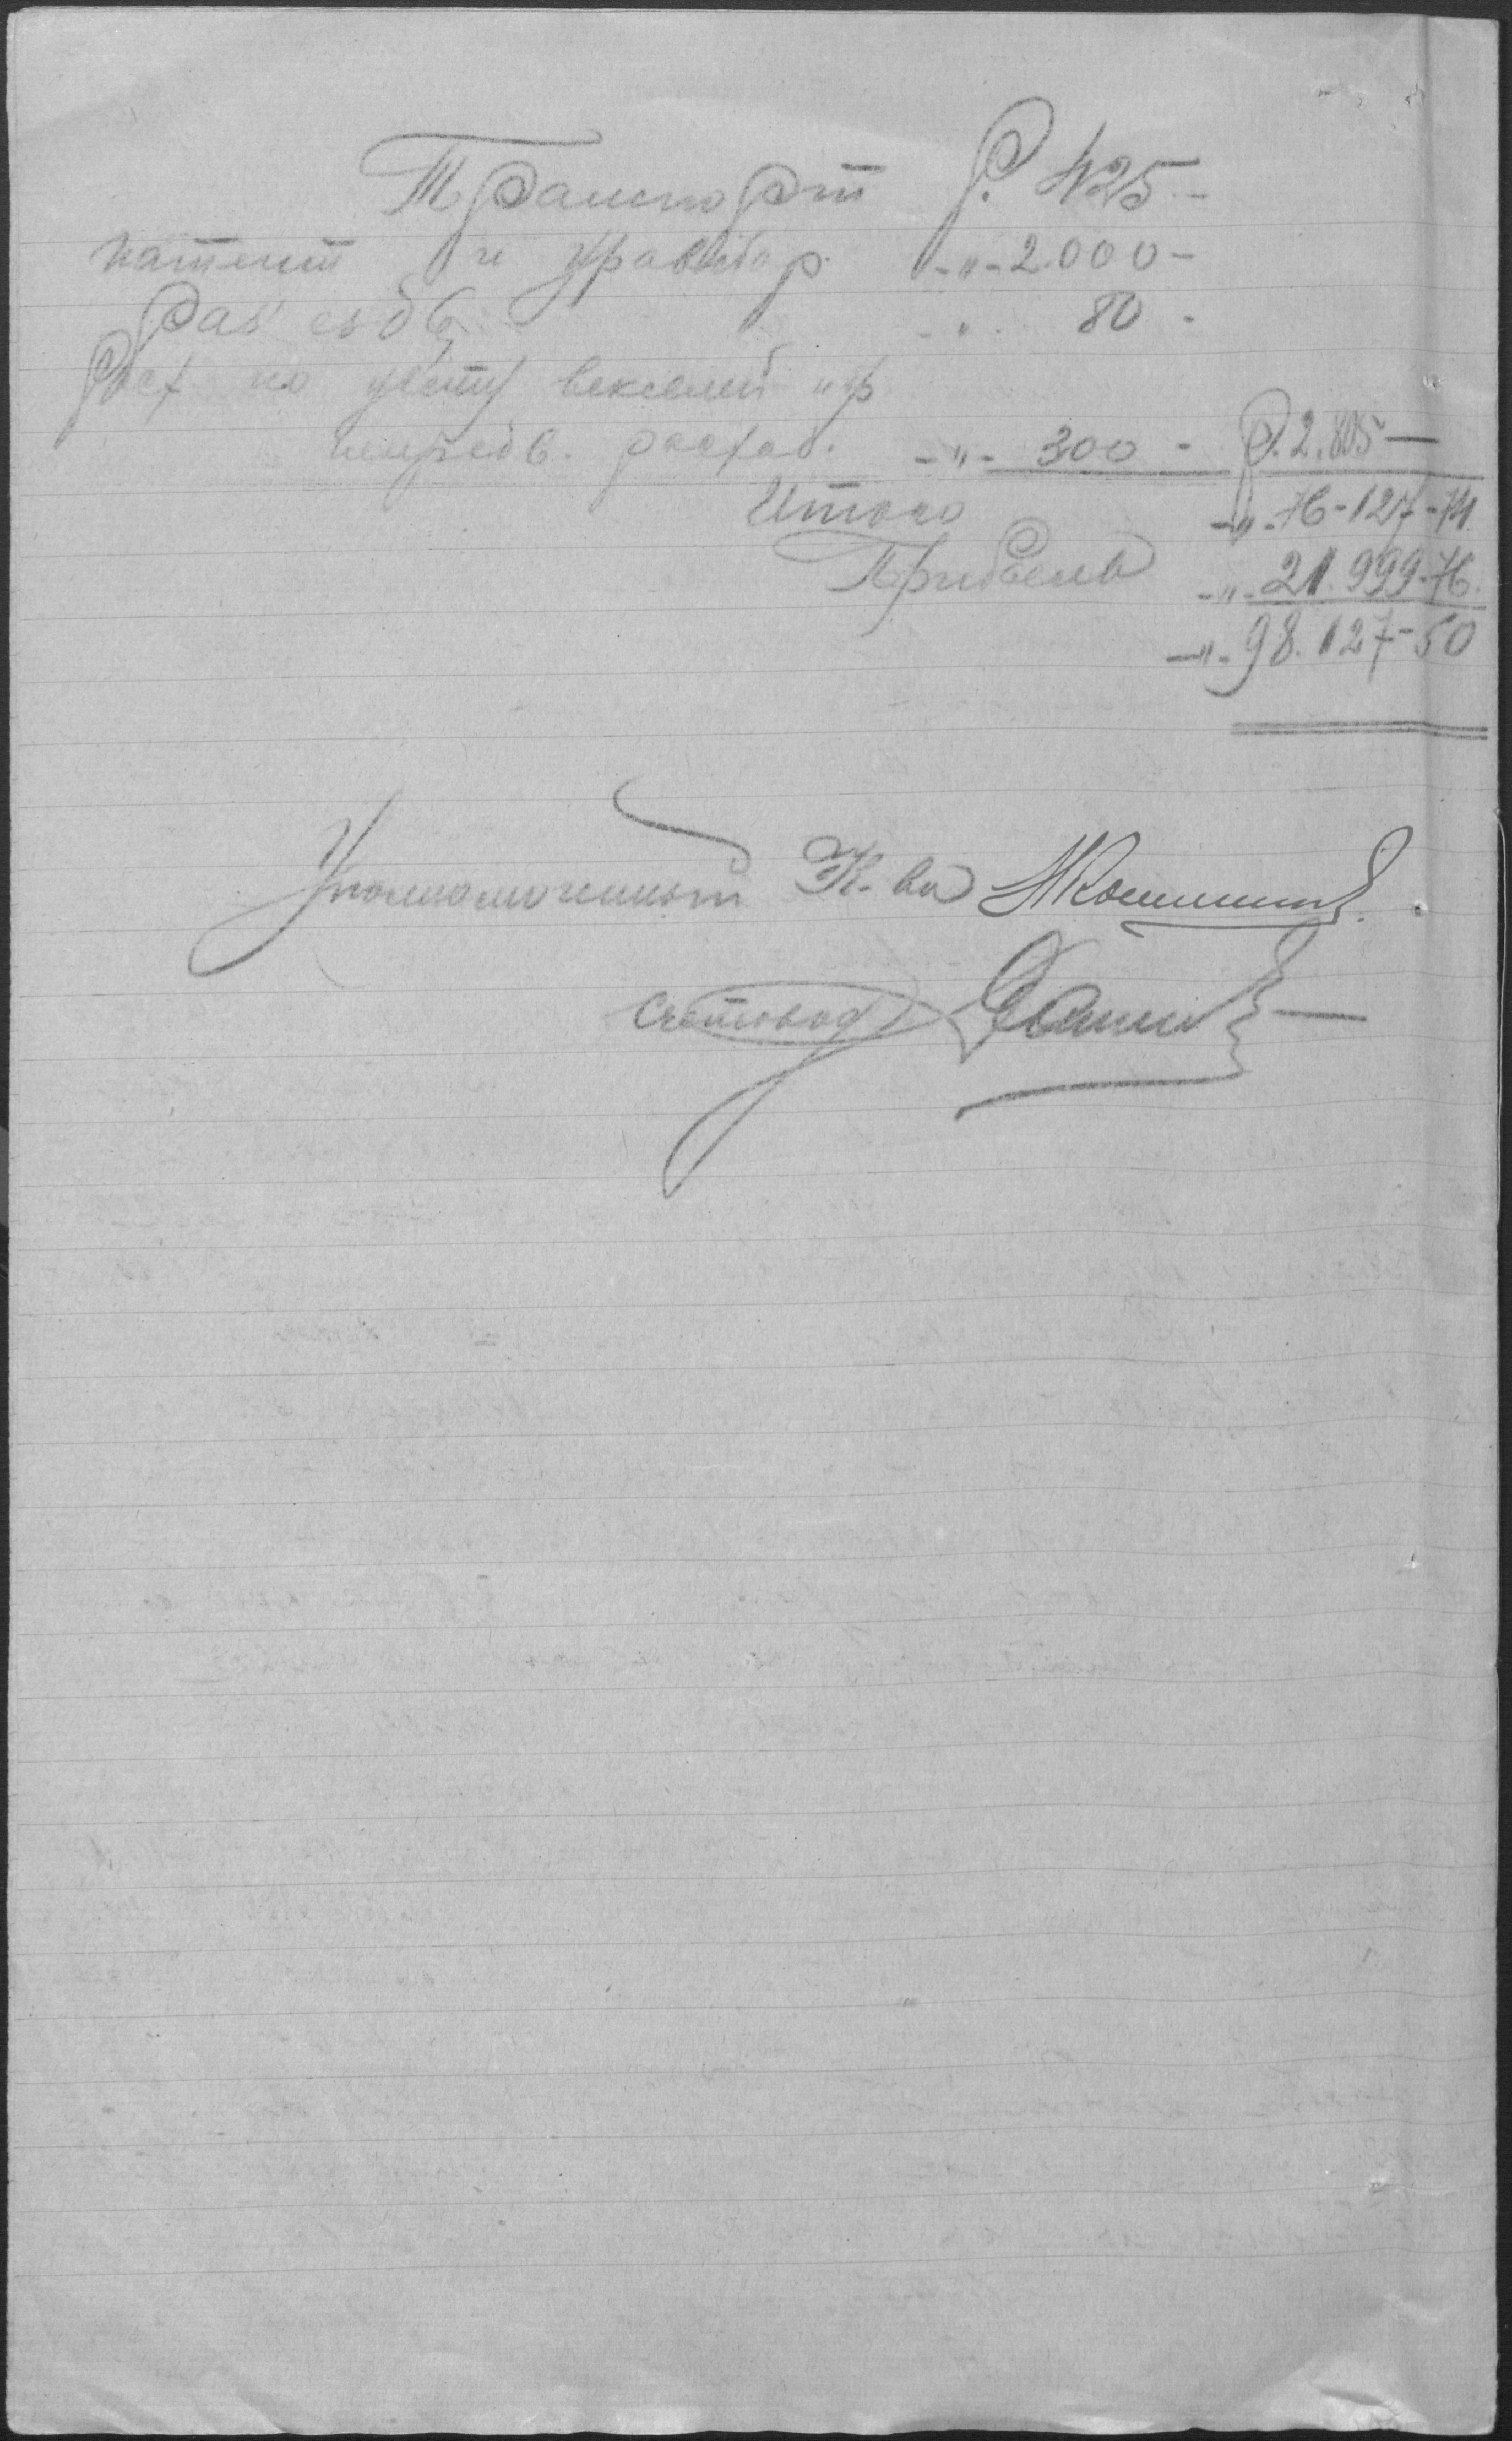 Транспорт Р. 425 -
патент и уравсбор -"- 2.000 -
Раз'езды -"- 80 -
Расх. по учету векселей и др.
непредв. расход. -"- 300 - Р. 2.805 —
Итого -"- 76-127-74
Прибыль -"- 21.999-76.
-"- 98.127-50
Уполномоченный К-ва
Счетовод